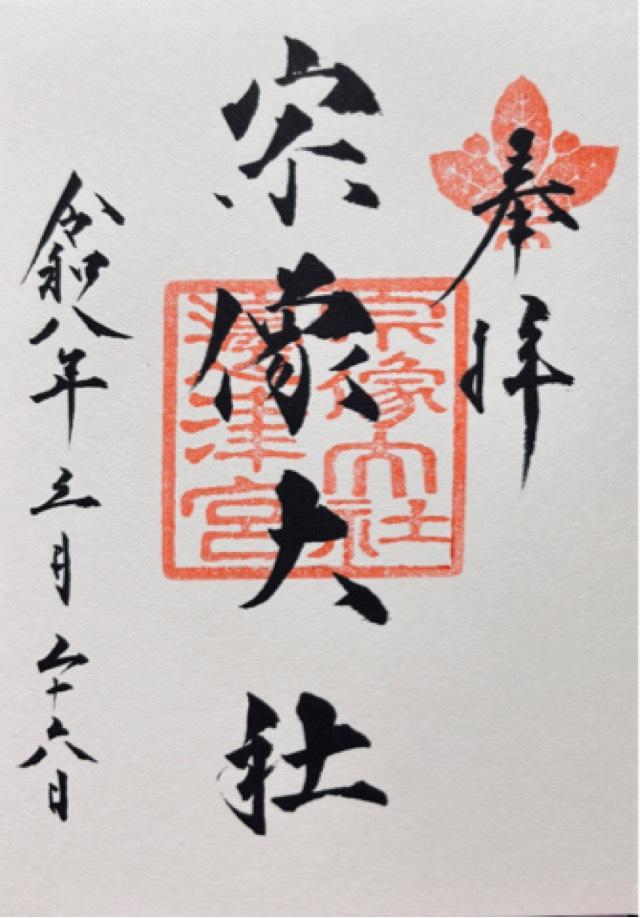 奉拝
宗像大社
宗像大社
邊津宮
令和八年三月二十六日